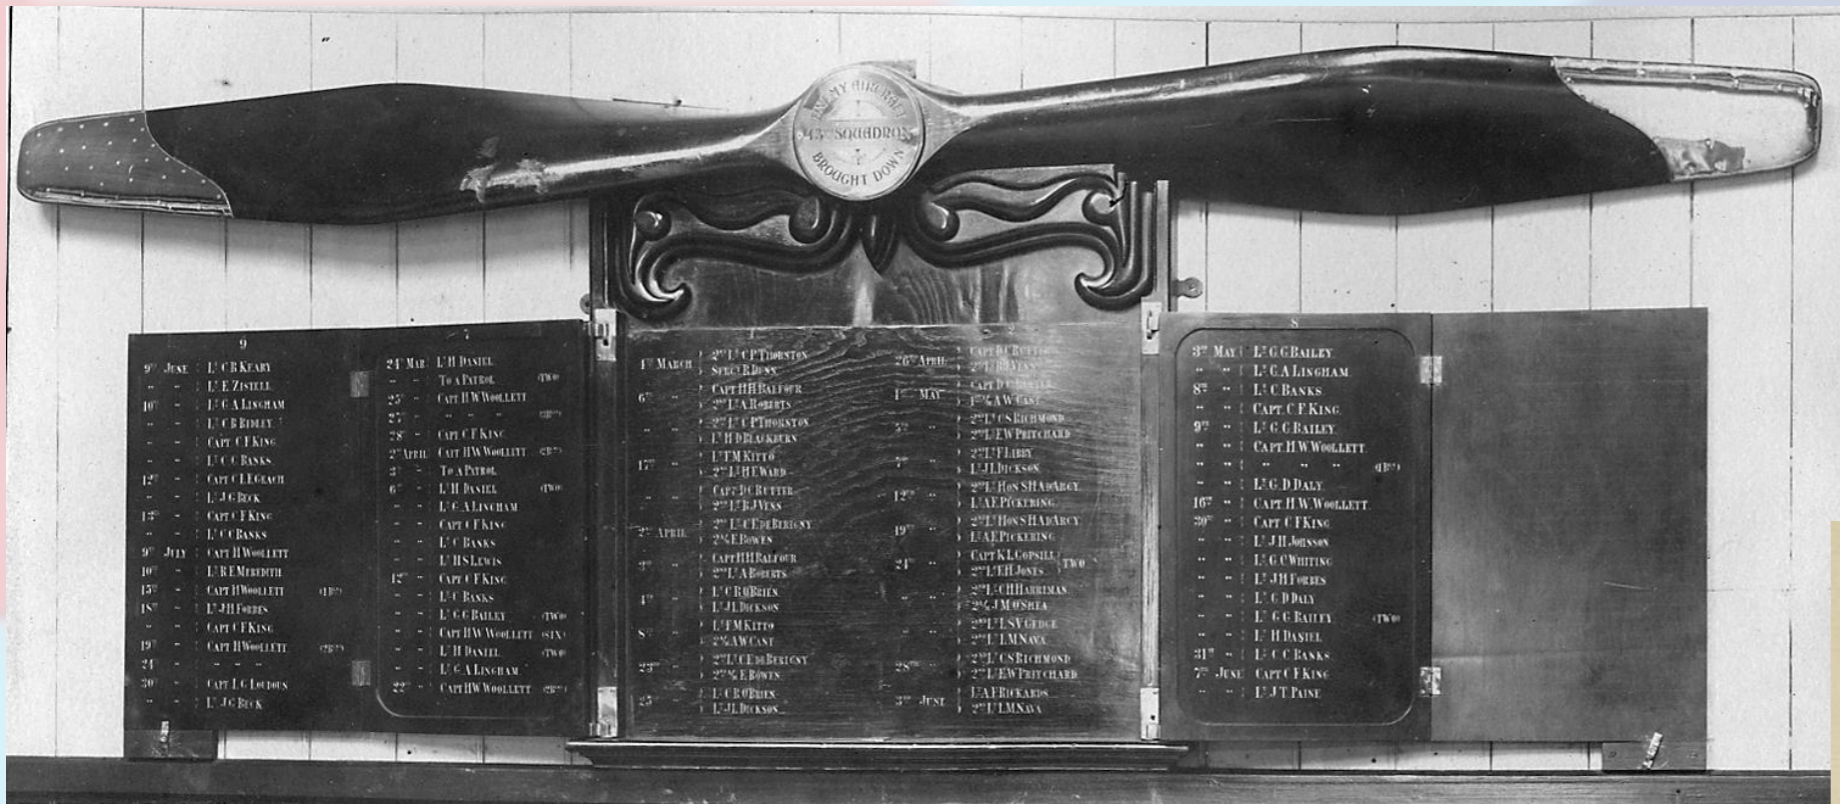 ENEMY AIRCRAFT
43RD SQUADRON
BROUGHT DOWN
9
9TH JUNE LT C B KEARY
" " LT E ZISTELL
10TH " LT G A LINGHAM
" " LT C B RIDLEY
" " CAPT C F KING
" " LT C C BANKS
12TH " CAPT C L E GEACH
" " LT J G BECK
13TH " CAPT C F KING
" " LT C C BANKS
9TH JULY CAPT H WOOLLETT
10TH " LT R E MEREDITH
15TH " CAPT H WOOLLETT
18TH " LT J H FORBES
" " CAPT C F KING
19TH " CAPT H WOOLLETT
24 " " " "
30 " CAPT L G LOUDOUS
" " LT J G BECK
7
24TH MAR LT H DANIEL
" " TO A PATROL (TWO)
25TH " CAPT H W WOOLLETT
27TH " " " "
28TH " CAPT C F KING
2ND APRIL CAPT H W WOOLLETT
3RD " TO A PATROL
6TH " LT H DANIEL (TWO)
" " LT G A LINGHAM
" " CAPT C F KING
" " LT C BANKS
" " LT H S LEWIS
12TH " CAPT C F KING
" " LT C BANKS
" " LT G G BAILEY (TWO)
" " CAPT H W WOOLLETT (SIX)
" " LT H DANIEL (TWO)
" " LT G A LINGHAM
22ND " CAPT H W WOOLLETT
4TH MARCH 2ND LT C P THORNTON
SERGT R DUNN
6TH " CAPT H H BALFOUR
2ND LT A ROBERTS
" " 2ND LT C P THORNTON
LT H D BLACKBURN
17TH " LT F M KITTO
2ND LT H E WARD
" " CAPT D C RUTTER
2ND LT B J VENS
2ND APRIL 2ND LT C E DE BERIGNY
E BOWEN
3RD " CAPT H H BALFOUR
2ND LT A ROBERTS
4TH " LT C R O'BRIEN
LT J L DICKSON
8TH " LT F M KITTO
A W CAST
23RD " 2ND LT C E DE BERIGNY
E BOWEN
25TH " LT C R O'BRIEN
LT J L DICKSON
26TH APRIL CAPT D C RUTTER
2ND LT B J VENS
1ST MAY CAPT D C RUTTER
A W CAST
5TH " 2ND LT C S RICHMOND
2ND LT E W PRITCHARD
7TH " 2ND LT F LIBBY
LT J L DICKSON
12TH " 2ND LT HON S H D'ARCY
LT A E PICKERING
19TH " 2ND LT HON S H D'ARCY
LT A E PICKERING
24TH " CAPT K L GOPSILL (TWO
2ND LT F H JONES
" " 2ND LT C H HARRIMAN
J M O'SHEA
" " 2ND LT L S V GEDGE
2ND LT L M NAVA
28TH " 2ND LT C S RICHMOND
2ND LT E W PRITCHARD
3RD JUNE LT A F RICKARDS
2ND LT L M NAVA
8
3RD MAY LT G G BAILEY
" " LT G A LINGHAM
8TH " LT C BANKS
" " CAPT C F KING
9TH " LT G G BAILEY
" " CAPT H W WOOLLETT
" " " " "
" " LT G D DALY
16TH " CAPT H W WOOLLETT
30TH " CAPT C F KING
" " LT J H JOHNSON
" " LT G C WHITING
" " LT J H FORBES
" " LT G D DALY
" " LT G G BAILEY (TWO)
" " LT H DANIEL
31ST " LT C C BANKS
7TH JUNE CAPT C F KING
" " LT J T PAINE